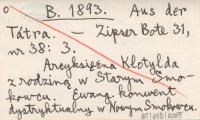 o B. 1893. Aus der
Tátra. — Zipser Bote 31,
nr 38: 3.
Arcyksiężna Klotylda
z rodziną w Starym Smo-
kowcu. Ewang. konwent
dystryktualny w Nowym Smokowcu.